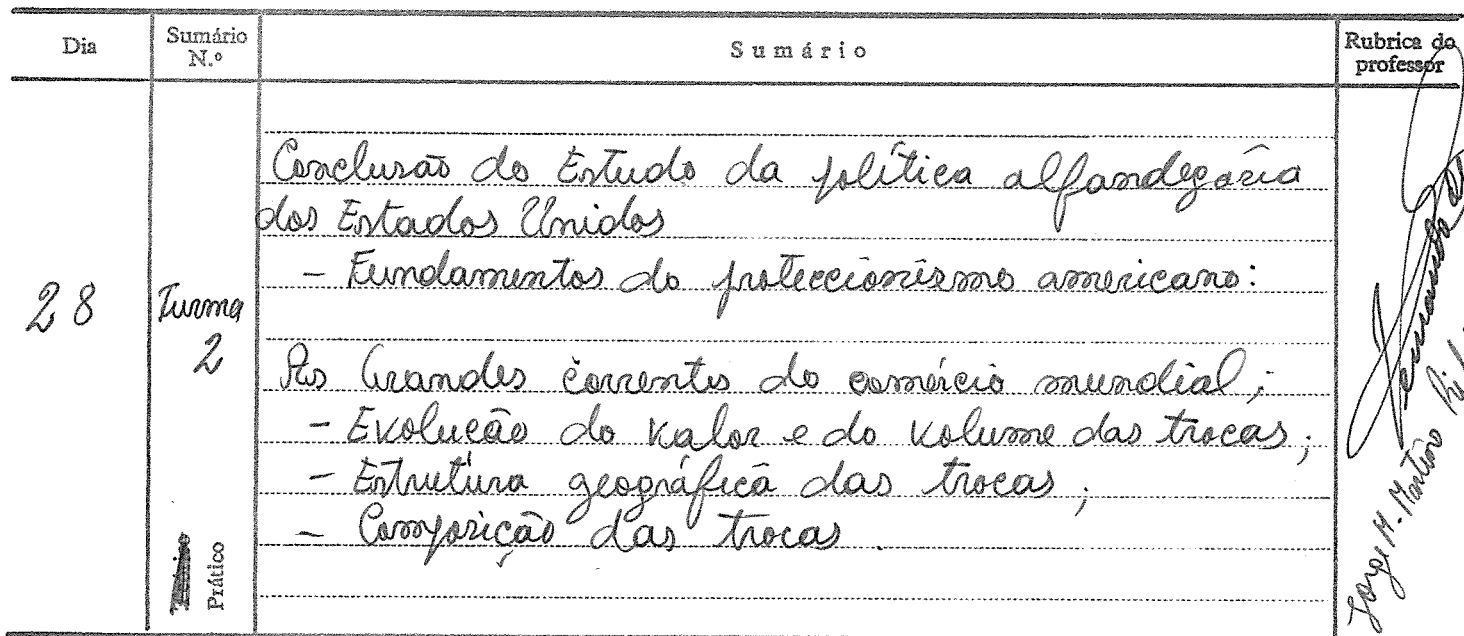 Dia
Sumário N.º
Sumário
Rubrica do professor
28
Turma 2
Prático
Conclusão do Estudo da política alfandegária
dos Estados Unidos
- Fundamentos do proteccionismo americano:
As Grandes correntes do comércio mundial;
- Evolução do valor e do volume das trocas;
- Estrutura geográfica das trocas;
- Composição das trocas.
Jorge M. Martins